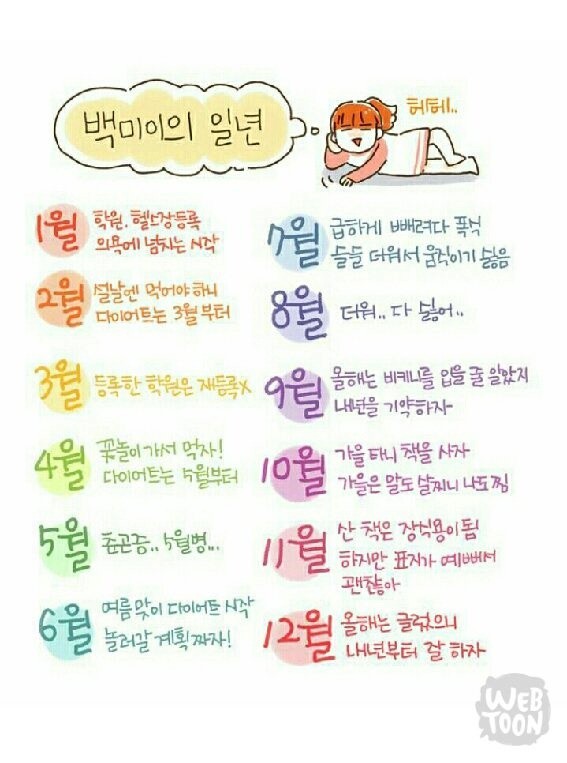 백미이의 일년
허헤..
1월
학원, 헬스장등록
의욕에 넘치는 시작
2월
설날엔 먹어야 하니
다이어트는 3월부터
3월
등록한 학원은 재등록x
4월
꽃놀이가서 먹자!
다이어트는 5월부터
5월
춘곤증.. 5월병...
6월
여름맞이 다이어트 시작
놀러갈 계획 짜자!
7월
급하게 빼려다 폭식
들들 더워서 움직이기 싫음
8월
더워.. 다 싫어..
9월
올해는 비키니를 입을 줄 알았지
내년을 기약하자
10월
가을 타니 책을 사자
가을은 말도 살찌니 나도 찜
11월
산 책은 장식용이 됨
하지만 표지가 예뻐서
괜찮아
12월
올해는 글렀으니
내년부터 잘 하자
WEB
TOON